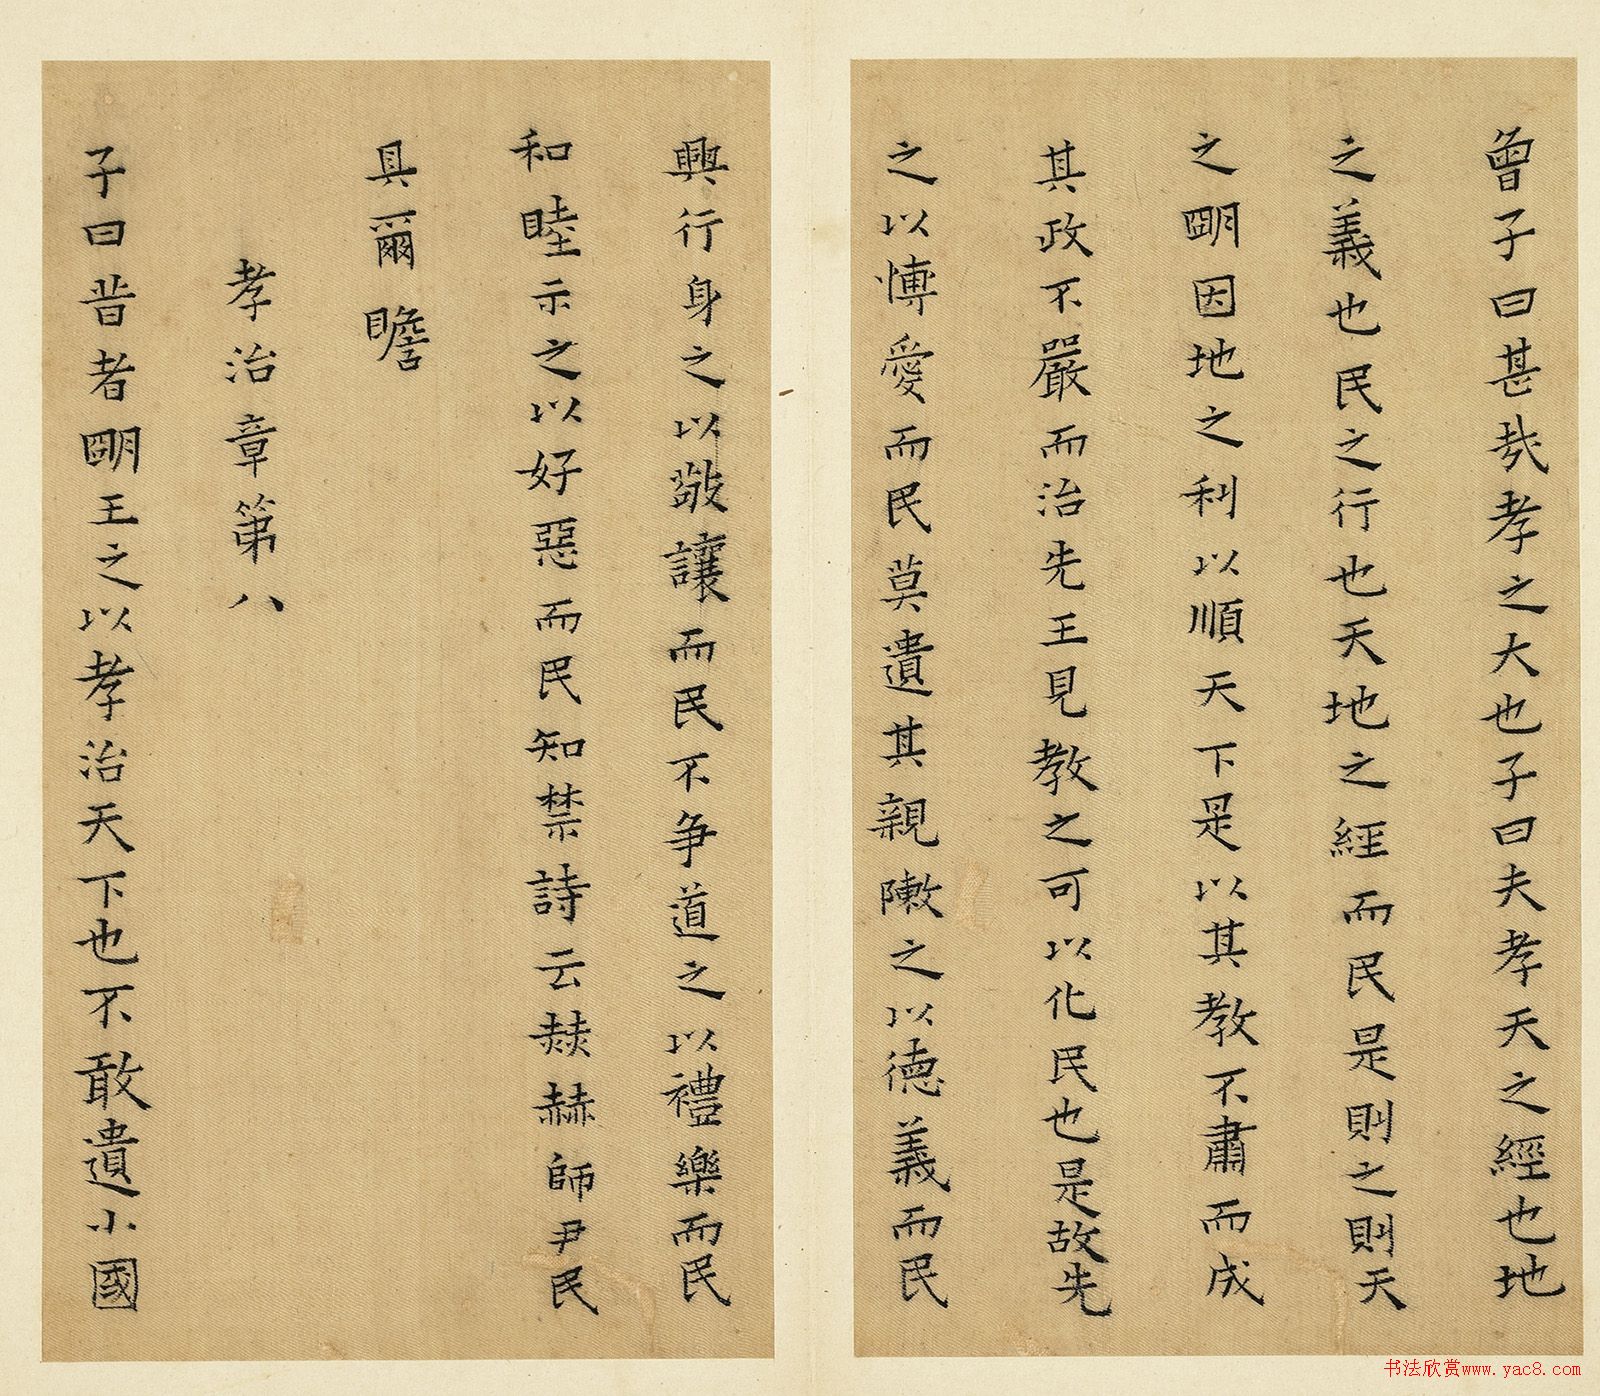 曾子曰甚哉孝之大也子曰夫孝天之經也地
之義也民之行也天地之經而民是則之則天
之朙因地之利以順天下是以其教不肅而成
其政不嚴而治先王見教之可以化民也是故先
之以愽愛而民莫遺其親敶之以德義而民
興行身之以敬讓而民不争道之以禮樂而民
和睦示之以好惡而民知禁詩云赫赫師尹民
具爾瞻
孝治章第八
子曰昔者朙王之以孝治天下也不敢遺小國
书法欣赏www.yac8.com